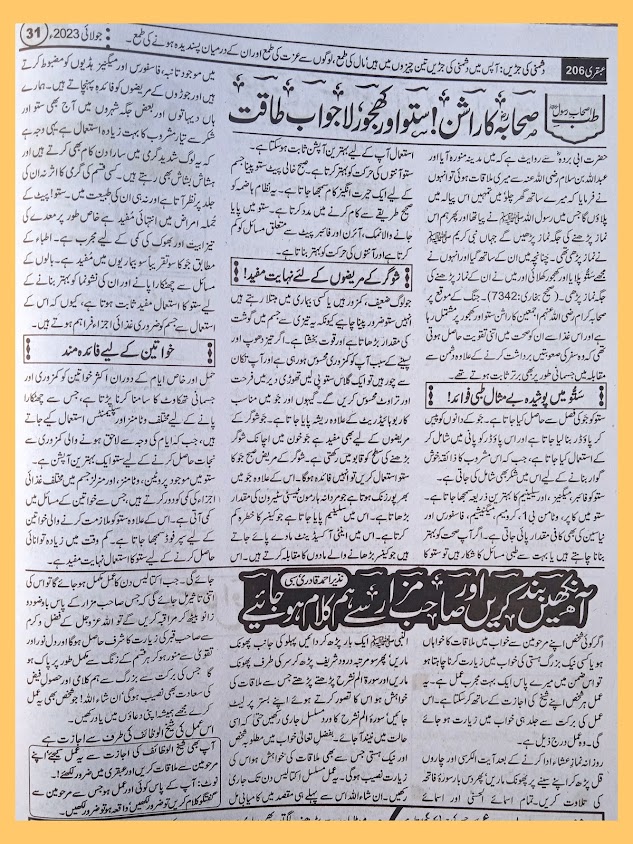 عبقری 206
دشمنی کی جڑیں: آپس میں دشمنی کی جڑیں تین چیزوں میں ہیں مال کی طمع، لوگوں سے عزت کی طمع اور ان کے درمیان پسندیدہ ہونے کی طمع۔
جولائی 2023ء
31
طب اصحاب رسولؐ
صحابہؓ کا راشن! ستو اور کھجور لاجواب طاقت
حضرت ابی بردہؓ سے روایت ہے کہ میں مدینہ منورہ آیا اور
عبداللہ بن سلام رضی اللہ عنہ سے میری ملاقات ہوئی تو انہوں
نے فرمایا کہ میرے ساتھ گھر چلو میں تمہیں اس پیالہ میں
پلاؤں گا جس میں رسول اللہ ﷺ نے پیا تھا اور پھر ہم اس
نماز پڑھنے کی جگہ نماز پڑھیں گے جہاں نبی کریم ﷺ
نے نماز پڑھی تھی۔ چنانچہ میں ان کے ساتھ گیا اور انہوں نے
مجھے ستو پلایا اور کھجور کھلائی اور میں نے ان کے نماز پڑھنے کی
جگہ نماز پڑھی۔ (صحیح بخاری: 7342)۔ جنگ کے موقع پر
صحابہ کرام رضی اللہ عنہم اجمعین کا راشن ستو اور کھجور پر مشتمل رہا
ہے اور اس غذا سے ان کو صحت میں اتنی تقویت حاصل ہوتی
تھی کہ وہ سفر کی صعوبتیں برداشت کرنے کے علاوہ دشمن سے
مقابلہ میں جسمانی طور پر بھی برتر ثابت ہوتے تھے۔
ستو میں پوشیدہ بے مثال طبی فوائد!
ستو کو جو کی فصل سے حاصل کیا جاتا ہے۔ جو کے دانوں کو پیس
کر پاؤڈر بنا لیا جاتا ہے اور اس پاؤڈر کو پانی میں شامل کر
کے استعمال کیا جاتا ہے، جب کہ اس مشروب کا ذائقہ خوش
گوار بنانے کے لیے اس میں شکر بھی شامل کی جاتی ہے۔
ستو کو فائبر، میگنیز، اور سیلینیم کا بہترین ذریعہ سمجھا جاتا ہے۔
ستو میں کاپر، وٹامن بی 1، کرومیم، میگنیشیم، فاسفورس اور
نیاسین کی بھی کافی مقدار پائی جاتی ہے۔ اگر آپ صحت کو بہتر
بنانا چاہتے ہیں یا بہت سے طبی مسائل کا شکار ہیں تو ستو کا
استعمال آپ کے لیے بہترین آپشن ثابت ہو سکتا ہے۔
ستو آنتوں کی حرکت کو بہتر کرتا ہے۔ صبح خالی پیٹ ستو پینا جسم
کے لیے ایک حیرت انگیز کام سمجھا جاتا ہے۔ یہ نظام ہاضمہ کو
صحیح طریقے سے کام کرنے میں مدد کرتا ہے۔ ستو میں پایا
جانے والا نمک، آئرن اور فائبر پیٹ سے متعلق مسائل کو کم
کرتا ہے اور آنتوں کی حرکت کو بہتر بناتا ہے۔
شوگر کے مریضوں کے لئے نہایت مفید!
جو لوگ ضعیف، کمزور ہیں یا کسی بیماری میں مبتلا رہتے ہیں
انہیں ستو ضرور پینا چاہیے کیونکہ یہ تیزی سے جسم میں گوشت
کی مقدار بڑھاتا ہے اور قوت بخشتا ہے۔ اگر تیز دھوپ اور
پسینے کے سبب آپ کو کمزوری محسوس ہو رہی ہے اور آپ تھکان
سے چور ہیں تو ایک گلاس ستو پی لیں تھوڑی دیر میں فرحت
اور تراوٹ محسوس کریں گے۔ گیہوں اور جو میں مناسب
کاربوہائیڈریٹ کے علاوہ ریشہ پایا جاتا ہے۔ جو شوگر کے
مریضوں کے لیے بھی مفید ہے جو خون میں اچانک شوگر
بڑھنے کی سطح کو قابو میں رکھتی ہے۔ شوگر کے مریض صبح جو کا
ستو استعمال کریں تو انہیں فائدہ ہوگا۔ اس کے علاوہ جو میں
بھرپور زنک ہوتا ہے جو مردانہ ہارمون ٹیسٹی سٹیرون کی مقدار
بڑھاتا ہے۔ اس میں سیلینیم پایا جاتا ہے جو کینسر کا خطرہ کم
کرتا ہے۔ اس میں اینٹی آکسیڈینٹ مادے پائے جاتے
ہیں جو کینسر بڑھانے والے مادوں کا مقابلہ کرتے ہیں۔ اس
میں موجود تانبہ، فاسفورس اور میگنیز ہڈیوں کو مضبوط کرتے
ہیں اور جوڑوں کے مریضوں کو فائدہ پہنچاتے ہیں۔ ہمارے
ہاں دیہاتوں اور بعض جگہ شہروں میں آج بھی ستو اور
شکر سے تیار مشروب کا بہت زیادہ استعمال ہے یہی وجہ ہے
کہ یہ لوگ شدید گرمی میں سارا دن کام بھی کرتے ہیں اور
ہشاش بشاش بھی رہتے ہیں۔ کسی قسم کی گرمی کا اثر نہ ان کی
جلد پر نظر آتا ہے اور نہ ہی ان کی طبیعت میں۔ ستو! پیٹ کے
جملہ امراض میں انتہائی مفید ہے خاص طور پر معدے کی
تیزابیت اور بھوک کی کمی کے لیے مجرب ہے۔ اطباء کے
مطابق جو کا ستو تقریباً سو بیماریوں میں مفید ہے۔ بالوں کے
مسائل سے چھٹکارا پانے اور ان کی نشوونما کو بہتر بنانے کے
لیے ستو کا استعمال مفید ثابت ہوتا ہے، کیوں کہ اس کے
استعمال سے جسم کو ضروری غذائی اجزاء فراہم ہوتے ہیں۔
خواتین کے لیے فائدہ مند
حمل اور خاص ایام کے دوران اکثر خواتین کو کمزوری اور
جسمانی تھکاوٹ کا سامنا کرنا پڑتا ہے، جس سے چھٹکارا
پانے کے لیے مختلف وٹامنز اور سپلیمنٹس استعمال کیے جاتے
ہیں، جب کہ ایام کی وجہ سے لاحق ہونے والی کمزوری سے
نجات حاصل کرنے کے لیے ستو ایک بہترین آپشن ہے۔
ستو میں موجود پروٹین، وٹامنز، اور منرلز جسم میں مختلف غذائی
اجزاء کی کمی کو دور کرتے ہیں، جس سے خواتین کے مسائل میں
کمی آتی ہے۔ اس کے علاوہ ستو کو ملازمت کرنے والی خواتین
کے لیے سپر فوڈ سمجھا جاتا ہے۔ کم وقت میں زیادہ توانائی
حاصل کرنے کے لیے ستو کا استعمال مفید ہے۔
آنکھیں بند کریں اور صاحب مزار سے ہم کلام ہو جائیے
نذیر احمد قادری
اگر کوئی شخص اپنے مرحومین سے خواب میں ملاقات کا خواہاں
ہو یا کسی نیک بزرگ ہستی کی خواب میں زیارت کرنا چاہتا ہو
تو اس ضمن میں میرے پاس ایک بہت مجرب عمل ہے۔ یہ
عمل ہر شخص اپنے شیخ کی اجازت کے ساتھ کر سکتا ہے۔ اس
عمل کی برکت سے جلد ہی خواب میں زیارت ہو جائے
گی۔ وہ عمل درج ذیل ہے۔
روزانہ نماز عشاء ادا کرنے کے بعد آیت الکرسی اور چاروں
قل پڑھ کر اپنے سینے پر پھونک ماریں پھر دس بار سورۂ فاتحہ
کی تلاوت کریں۔ تمام اسمائے الحسنیٰ اور اسمائے
النبی ﷺ ایک بار پڑھ کر دائیں پہلو کی جانب پھونک
ماریں۔ پھر سو مرتبہ درود شریف پڑھ کر سر کی طرف پھونک
ماریں اور سورۂ الم نشرح پڑھتے پڑھتے جس سے ملاقات کی
خواہش ہو اس کا تصور کرتے ہوئے اپنے بستر پر لیٹ
جائیں سورۂ الم نشرح کا ورد مسلسل جاری رکھیں حتیٰ کہ اسی
حالت میں نیند آ جائے۔ بفضل تعالیٰ خواب میں مطلوبہ شخص
اور نیک ہستی جس سے بھی ملاقات کی خواہش ہو اس کی
زیارت نصیب ہوگی۔ یہ عمل مسلسل اکتالیس دن تک جاری
رکھیں۔ ان شاء اللہ اس سے پہلے ہی مقصد میں کامیابی مل
جائے گی۔ جب اکتالیس دن کا عمل مکمل ہو جائے گا تو اس کی
اتنی تاثیر مل جائے گی کہ جس صاحب مزار کے پاس باوضو دو
زانو بیٹھ کر مراقبہ کریں گے تو اللہ عزوجل کے فضل و کرم
سے صاحب قبر کی زیارت کا شرف حاصل ہوگا اور دل نور اور
تقویٰ سے منور ہو کر ہر قسم کے زنگ سے مکمل طور پر پاک ہو
گا جس کی برکت سے بزرگ سے ہم کلامی اور حصول فیض
کی سعادت بھی نصیب ہوگی، ان شاء اللہ! جو شخص بھی یہ عمل
کرے مجھے ہمیشہ اپنی دعاؤں میں یاد رکھیں۔
اس عمل کی شیخ الوظائف کی طرف سے اجازت ہے
آپ بھی شیخ الوظائف کی اجازت سے یہ عمل کیجئے اپنے
مرحومین سے ملاقات کریں اور عبقری میں ضرور لکھئے!۔
نوٹ: آپ کے پاس کوئی اور عمل ہو جس سے مرحومین سے
گفتگو و کلام کریں تو ضرور لکھیں، واقعہ ہو تو ضرور لکھیں۔